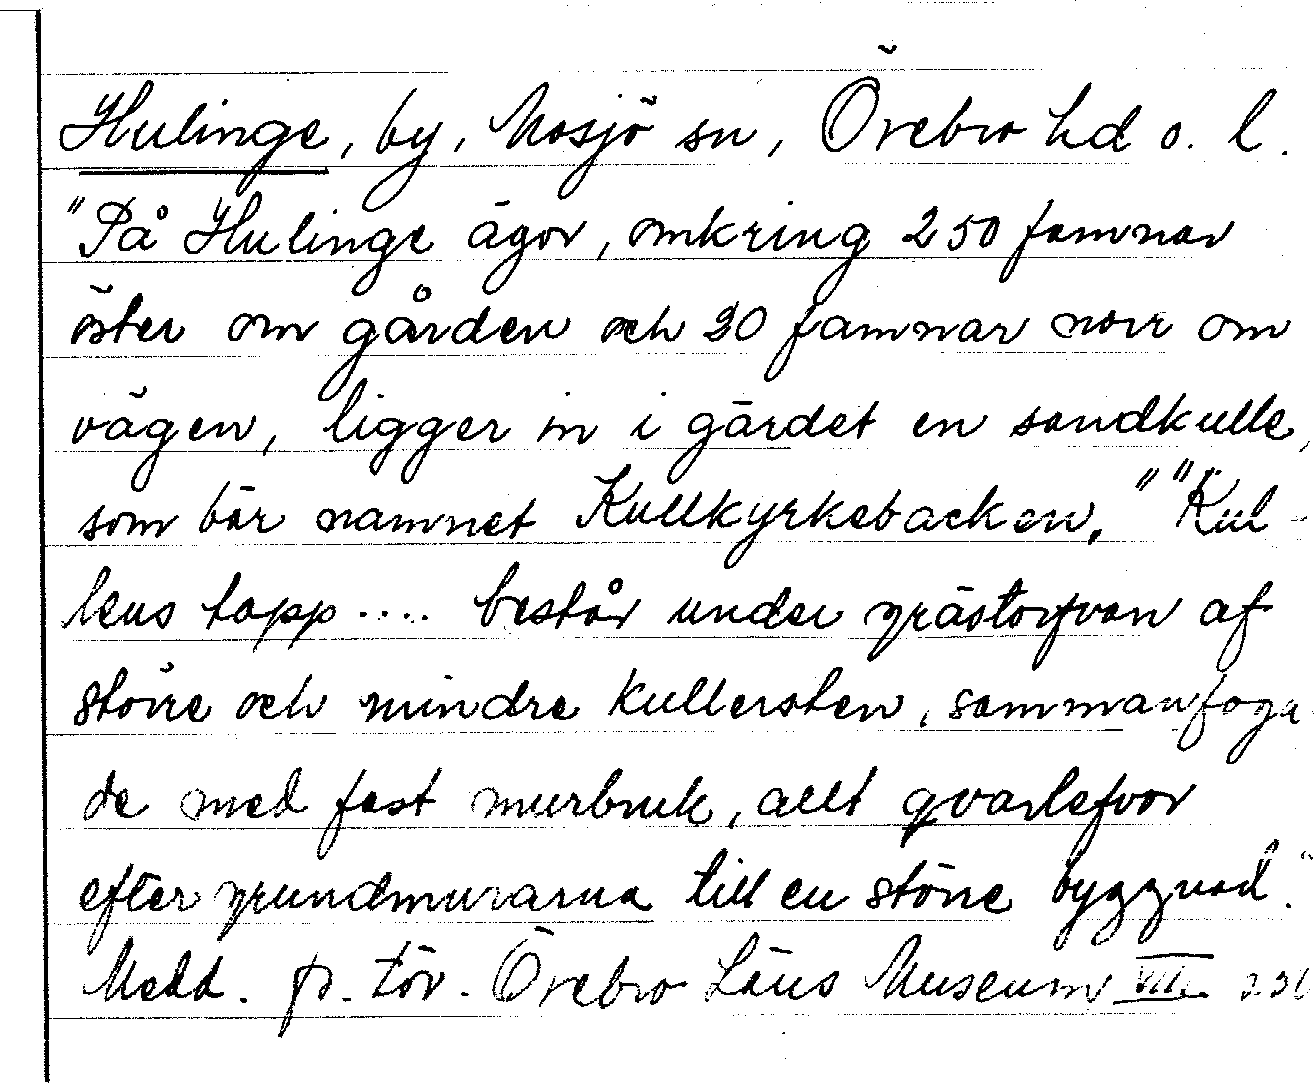 Hulinge, by, Mosjö sn, Örebro hd o. l.
"På Hulinge ägor, omkring 250 famnar
öster om gården och 20 famnar norr om
vägen, ligger in i gärdet en sandkulle,
som bär namnet Kullkyrkebacken." "Kul-
lens topp .... består under grästorfvan af
större och mindre kullersten, sammanfoga
de med fast murbruk, allt qvarlefvor
efter grundmurarna till en större byggnad."
Medd. fr. för. Örebro Läns Museum VIII